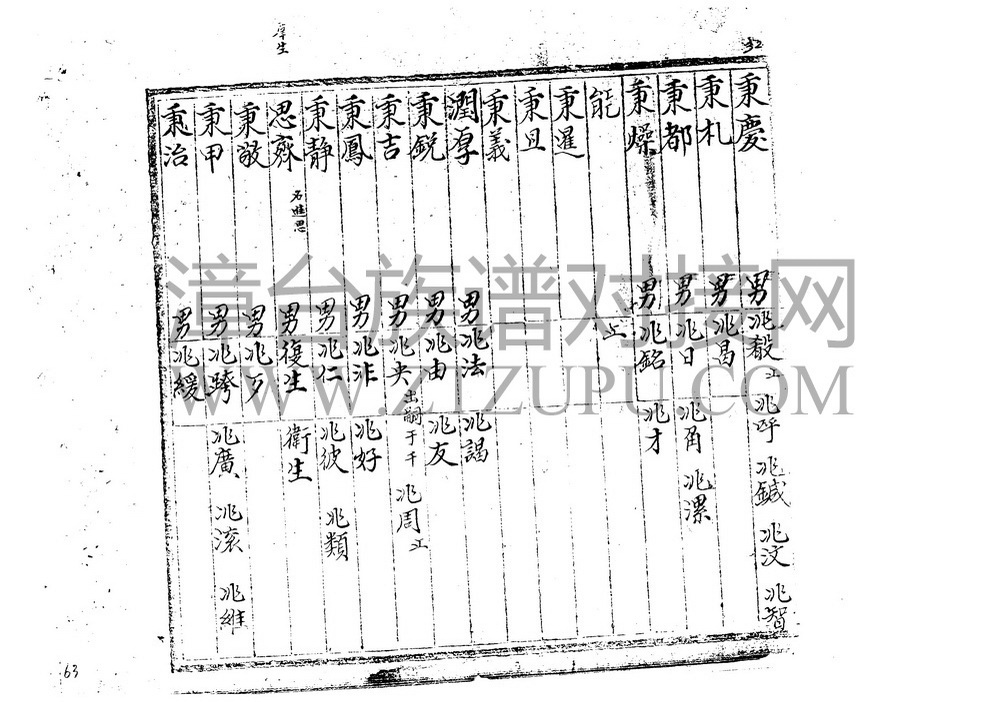 32
厚生
秉慶 男兆毅 兆呼 兆鍼 兆汶 兆智
秉札 男兆昌
秉都 男兆日 兆角 兆漯
秉燥 男兆銘 兆才
能
秉暹
秉旦
秉義
潤厚 男兆法 兆謁
秉鋭 男兆由 兆友
秉吉 男兆央 出嗣于千 兆周
秉鳳 男兆泮 兆好
秉静 男兆仁 兆彼 兆類
思齊 男復生 衛生
秉敬 男兆
秉甲 男兆跨 兆廣 兆滚 兆維
秉治 男兆緩
63
漳台族谱对接网
WWW.ZTZUPU.COM